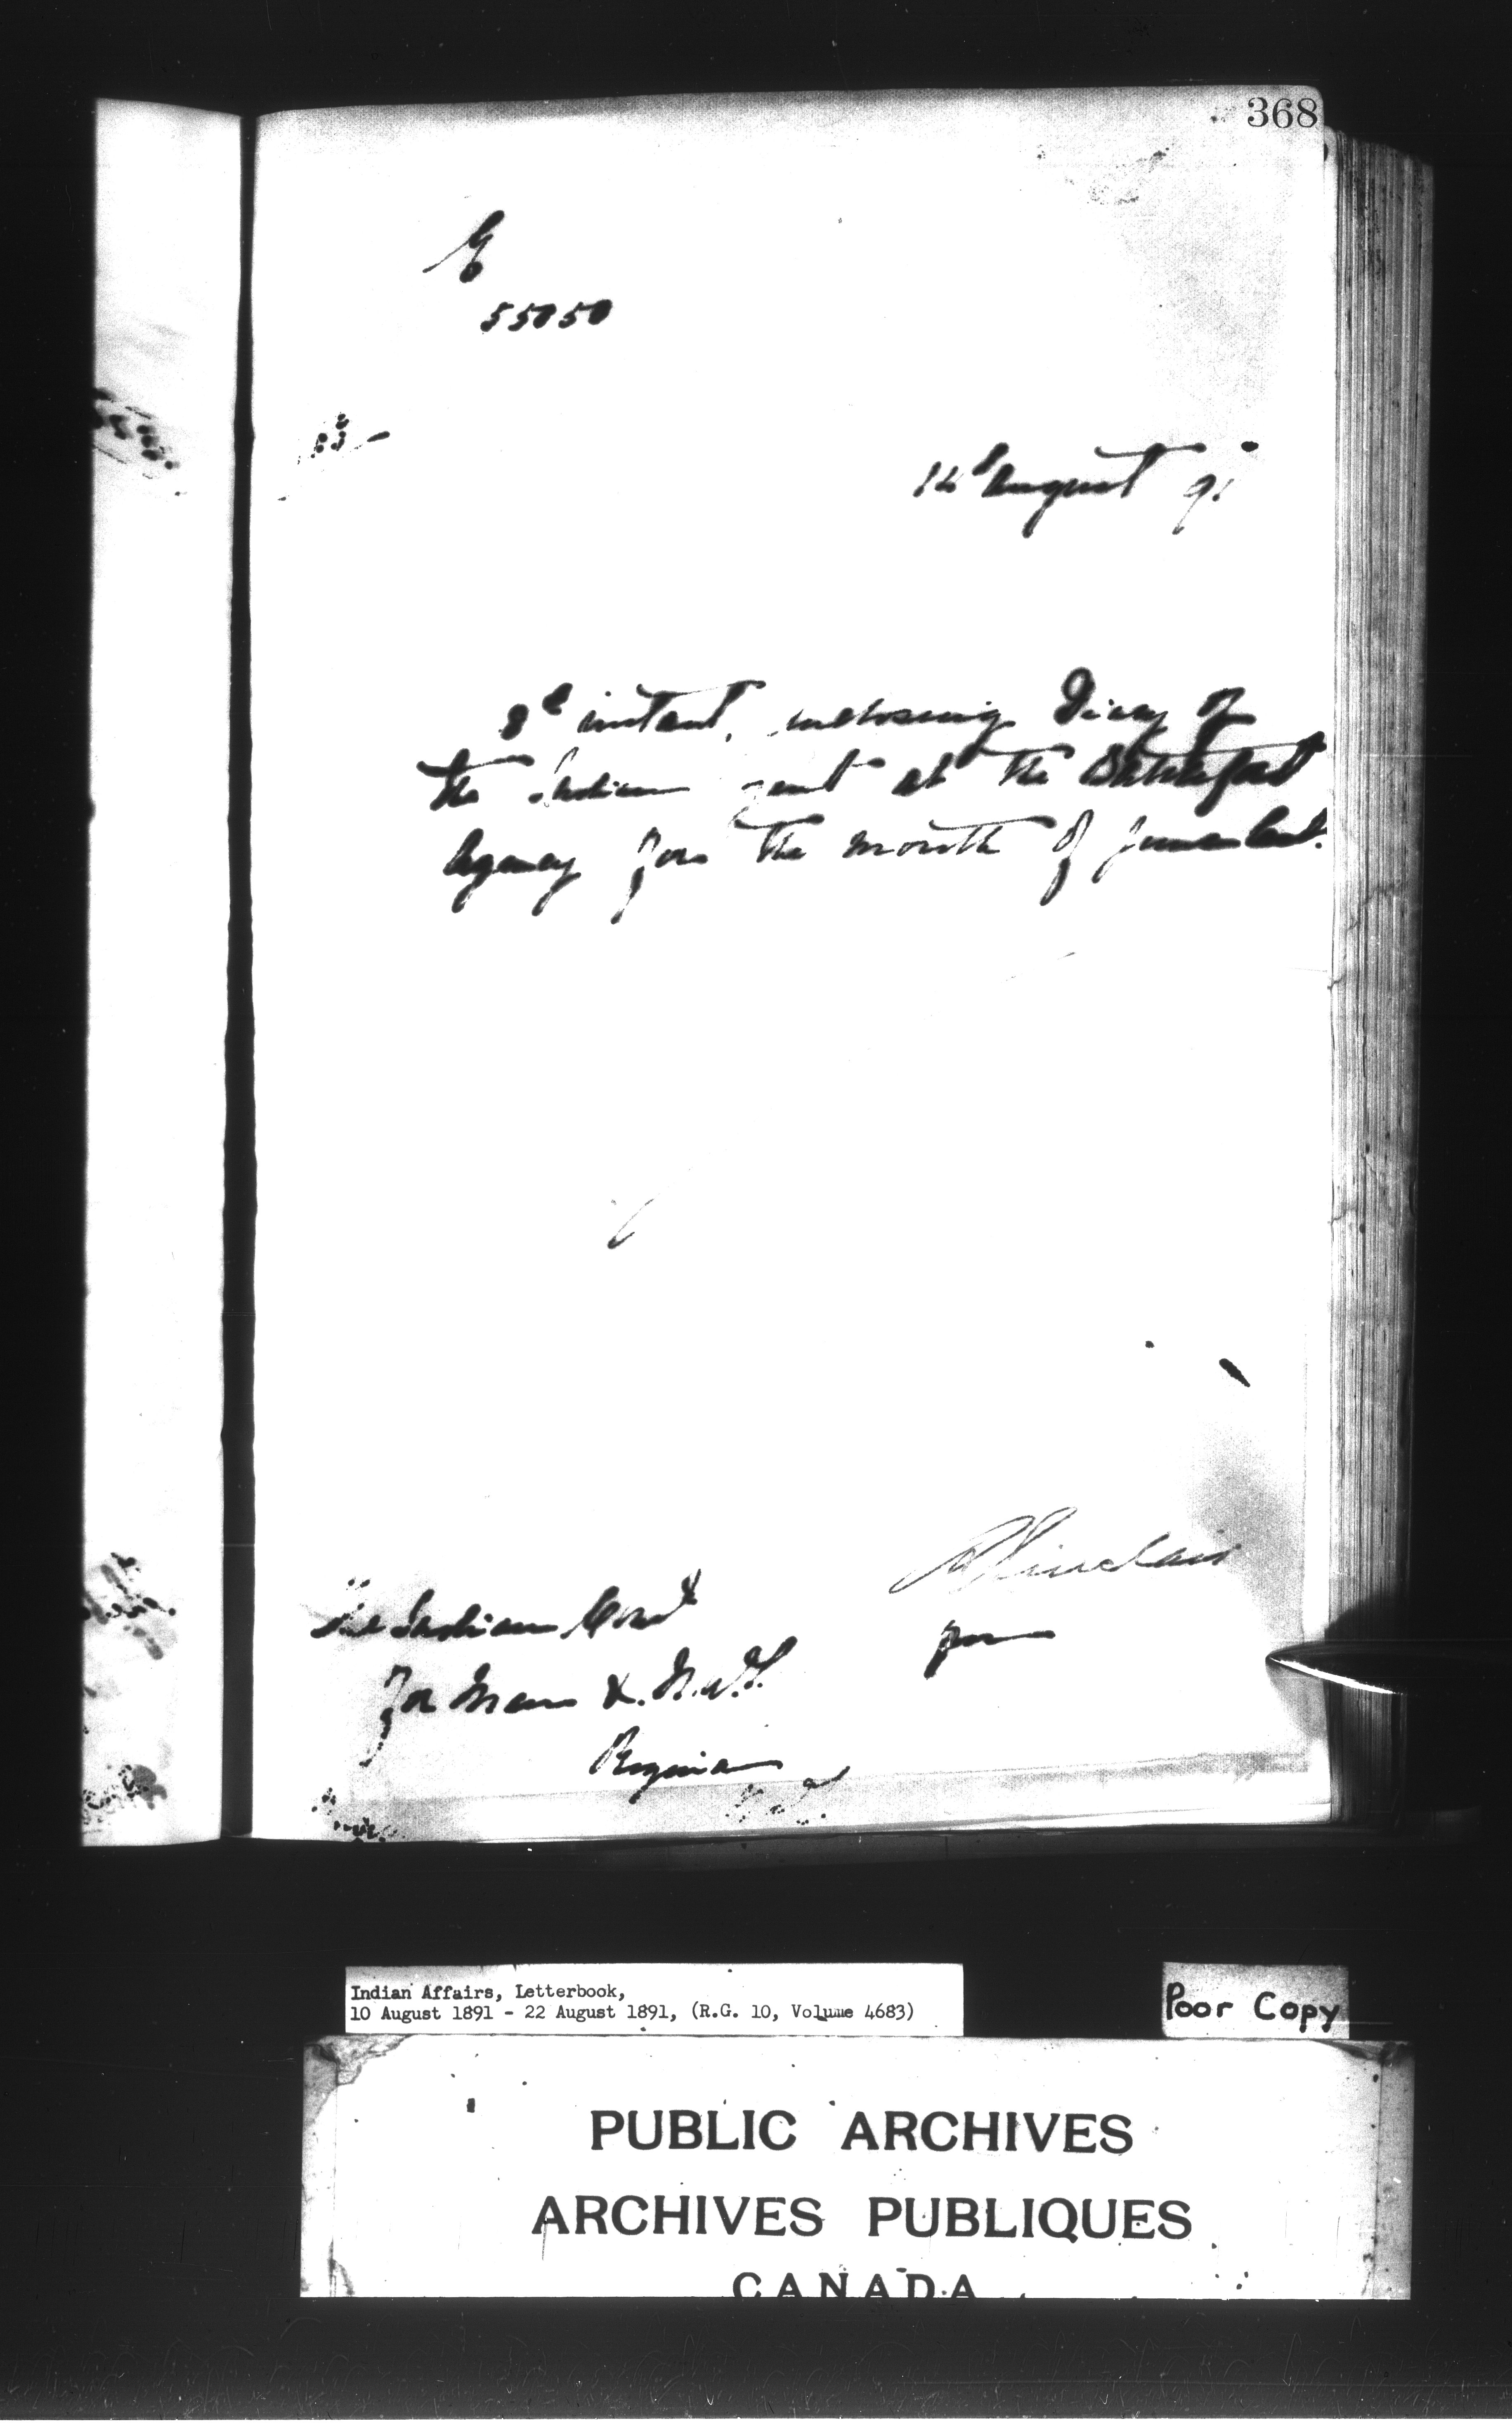 368
55050
14th August 91
8th instant, inclosing Diary of
the Indian gent at the Battleford
Agency for the month of June last.
R Sinclair
The Indian Comr
for Man & N.W.T.
pro
Regina
Indian Affairs, Letterbook,
10 August 1891 - 22 August 1891, (R.G. 10, Volume 4683)
Poor Copy
PUBLIC ARCHIVES
ARCHIVES PUBLIQUES
CANADA